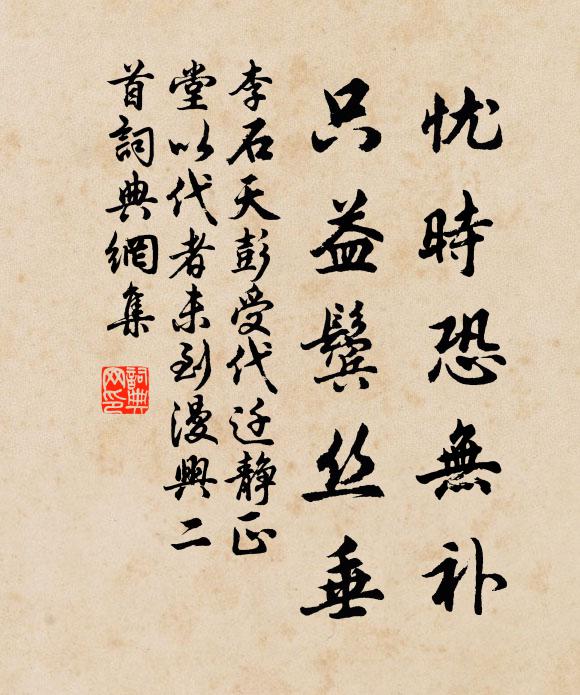 忧時恐無补
只益鬓丝垂
李石天彭受代迁静正
堂以代者未到漫興二
首詞典網集
詞典
网印